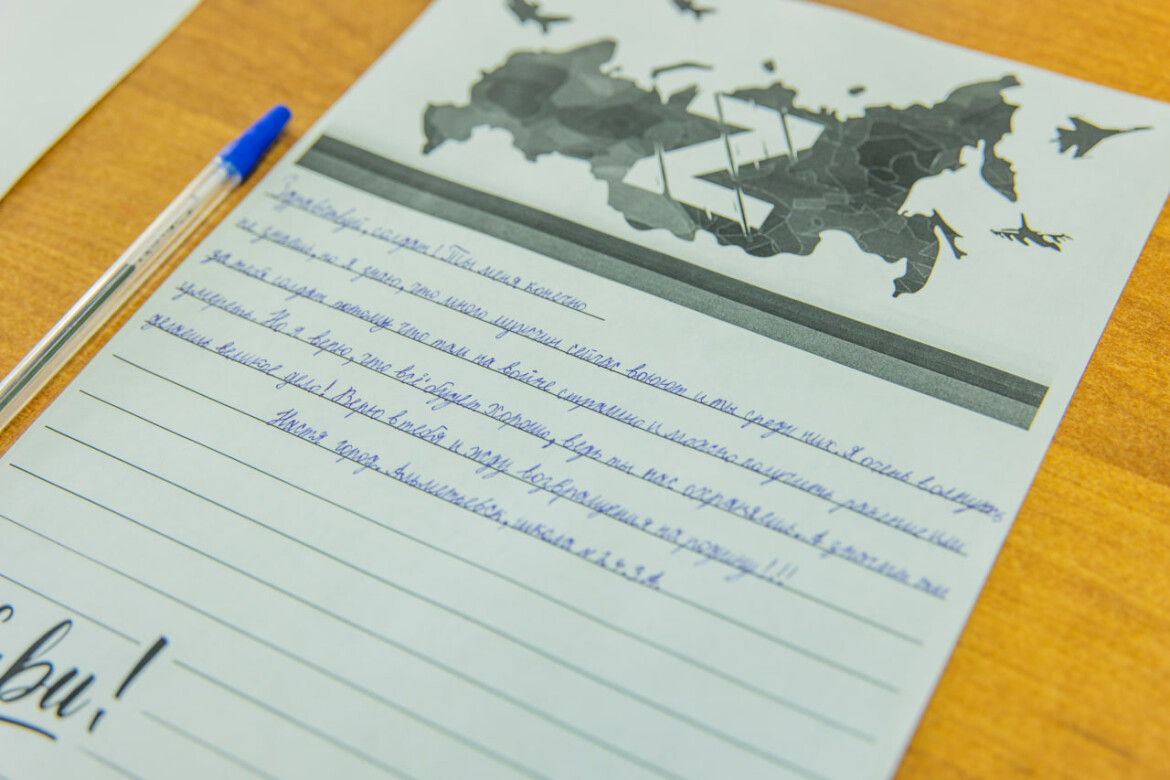 Здравствуй, солдат! Ты меня конечно
не знаешь, но я знаю, что много мужчин сейчас воюют и ты среди них. Я очень волнуюсь
за тебя солдат потому что там на войне страшно и можно получить ранение или
умереть. Но я верю, что всё будет хорошо, ведь ты нас сохраняешь. А значит ты
делаешь великое дело! Верю в тебя и жду возвращения на родину!!!
Настя город. Альметьевск, школа
Z
ви!